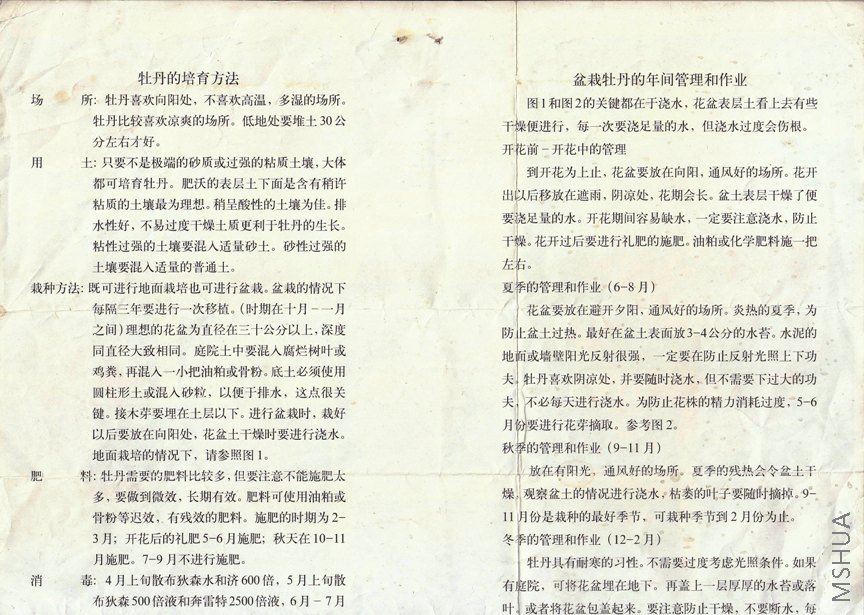 牡丹的培育方法
场 所: 牡丹喜欢向阳处，不喜欢高温，多湿的场所。
牡丹比较喜欢凉爽的场所。低地处要堆土30公
分左右才好。
用 土: 只要不是极端的砂质或过强的粘质土壤，大体
都可培育牡丹。肥沃的表层土下面是含有稍许
粘质的土壤最为理想。稍呈酸性的土壤为佳。排
水性好，不易过度干燥土质更利于牡丹的生长。
粘性过强的土壤要混入适量砂土。砂性过强的
土壤要混入适量的普通土。
栽种方法: 既可进行地面栽培也可进行盆栽。盆栽的情况下
每隔三年要进行一次移植。(时期在十月－一月
之间) 理想的花盆为直径在三十公分以上，深度
同直径大致相同。庭院土中要混入腐烂树叶或
鸡粪，再混入一小把油粕或骨粉。底土必须使用
圆柱形土或混入砂粒，以便于排水，这点很关
键。接木芽要埋在土层以下。进行盆栽时，栽好
以后要放在向阳处，花盆土干燥时要进行浇水。
地面栽培的情况下，请参照图1。
肥 料: 牡丹需要的肥料比较多，但要注意不能施肥太
多，要做到微效，长期有效。肥料可使用油粕或
骨粉等迟效，有残效的肥料。施肥的时期为2-
3月；开花后的礼肥5-6月施肥；秋天在10-11
月施肥。7-9月不进行施肥。
消 毒: 4月上旬散布狄森水和济600倍，5月上旬散
布狄森500倍液和奔雷特2500倍液，6月－7月
盆栽牡丹的年间管理和作业
图1和图2的关键都在于浇水，花盆表层土看上去有些
干燥便进行，每一次要浇足量的水，但浇水过度会伤根。
开花前－开花中的管理
到开花为上止，花盆要放在向阳，通风好的场所。花开
出以后移放在遮雨，阴凉处，花期会长。盆土表层干燥了便
要浇足量的水。开花期间容易缺水，一定要注意浇水，防止
干燥。花开过后要进行礼肥的施肥。油粕或化学肥料施一把
左右。
夏季的管理和作业 (6-8月)
花盆要放在避开夕阳，通风好的场所。炎热的夏季，为
防止盆土过热。最好在盆土表面放3-4公分的水苔。水泥的
地面或墙壁阳光反射很强，一定要在防止反射光照上下功
夫。牡丹喜欢阴凉处，并要随时浇水，但不需要下过大的功
夫，不必每天进行浇水。为防止花株的精力消耗过度，5-6
月份要进行花芽摘取。参考图2。
秋季的管理和作业 (9-11月)
放在有阳光，通风好的场所。夏季的残热会令盆土干
燥，观察盆土的情况进行浇水，枯萎的叶子要随时摘掉。9-
11月份是栽种的最好季节，可栽种季节到2月份为止。
冬季的管理和作业 (12-2月)
牡丹具有耐寒的习性。不需要过度考虑光照条件。如果
有庭院，可将花盆埋在地下。再盖上一层厚厚的水苔或落
叶，或者将花盆包盖起来。要注意防止干燥，不要断水，每
MSHUA